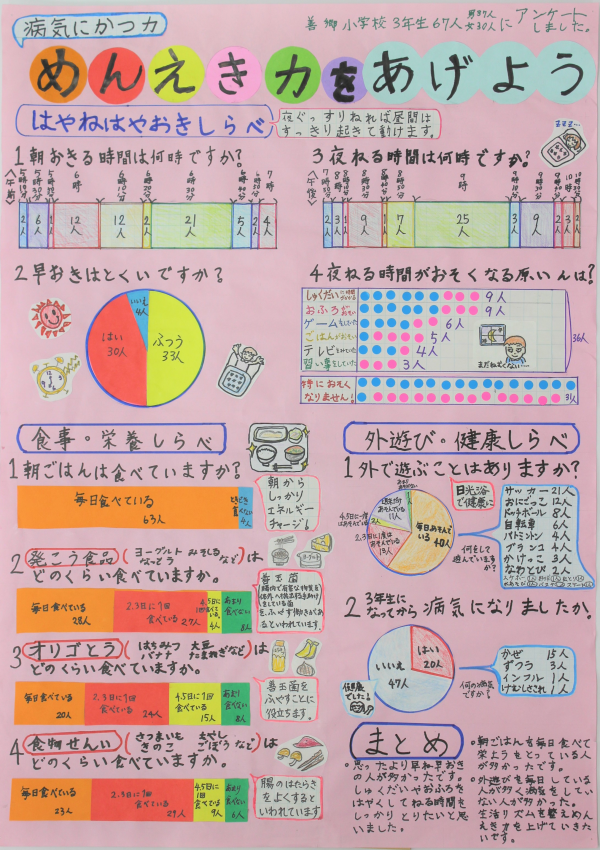 病気にかつ力
善郷小学校3年生67人 男37人 女30人 に アンケートしました。
めんえき力をあげよう
はやねはやおきしらべ
夜ぐっすりねれば昼間は
すっきり起きて動けます。
1朝おきる時間は何時ですか?
(午前)
6時
7時
2人
6人
1人
12人
12人
2人
21人
5人
2人
4人
3夜ねる時間は何時ですか?
(午後)
9時
10時
2人
3人
1人
9人
1人
7人
25人
3人
9人
2人
3人
2人
2早おきはとくいですか?
いいえ
4人
はい
30人
ふつう
33人
4夜ねる時間がおそくなる原いんは?
9人
おふろ
9人
ゲームをしていた
6人
ごはんがおそい
5人
テレビをみていた
4人
習い事をしていた
3人
36人
まだねむくない…
特におそく
なりません!
31人
食事・栄養しらべ
1朝ごはんは食べていますか?
毎日食べている
63人
ときどき
食べない
4人
朝から
しっかり
エネルギー
チャージ!
2発こう食品(ヨーグルト みそしる なっとう など)は
どのくらい食べていますか。
毎日食べている
28人
2,3日に1回
食べている
27人
4人
あまり
食べない
8人
善玉菌
をふせぐ働きがあ
るといわれています
3オリゴとう(はちみつ 大豆 バナナ たまねぎなど)は
どのくらい食べていますか。
毎日食べている
20人
2,3日に1回
食べている
24人
4.5日に1回
食べている
15人
あまり
食べない
8人
善玉菌を
ふやすことに
役立ちます。
4食物せんい(さつまいも もやし きのこ ごぼう など)は
どのくらい食べていますか。
毎日食べている
23人
2,3日に1回
食べている
29人
4.5日に
1回
食べている
9人
あまり
食べない
6人
腸のはたらき
をよくすると
いわれています
外遊び・健康しらべ
1外で遊ぶことはありますか?
毎日あそんでいる
40人
2.3日に1度は
あそんでいる
13人
4.5日に1度
はあそんでいる
11人
日光浴
で健康に
何をして
遊んでいま
すか?
サッカー 21人
おにごっこ 12人
ドッチボール 8人
自転車 6人
バトミントン 4人
ブランコ 4人
かけっこ 3人
なわとび 2人
2 3年生に
なってから病気になりましたか。
はい
20人
いいえ
47人
健康
でした!
何の病気
ですか?
かぜ 15人
ずつう 3人
インフル 1人
けむしさされ 1人
まとめ
•思ったより早ね早おき
の人が多かったです。
しゅくだいやおふろを
はやくしてねる時間を
しっかりとりたいと思
いました。
•朝ごはんを毎日食べて
栄ようをとっている人
が多かったです。
•外遊びを毎日している
人が多く病気をしてい
ない人が多かった。
生活リズムを整えめん
えき力を上げていきた
いです。